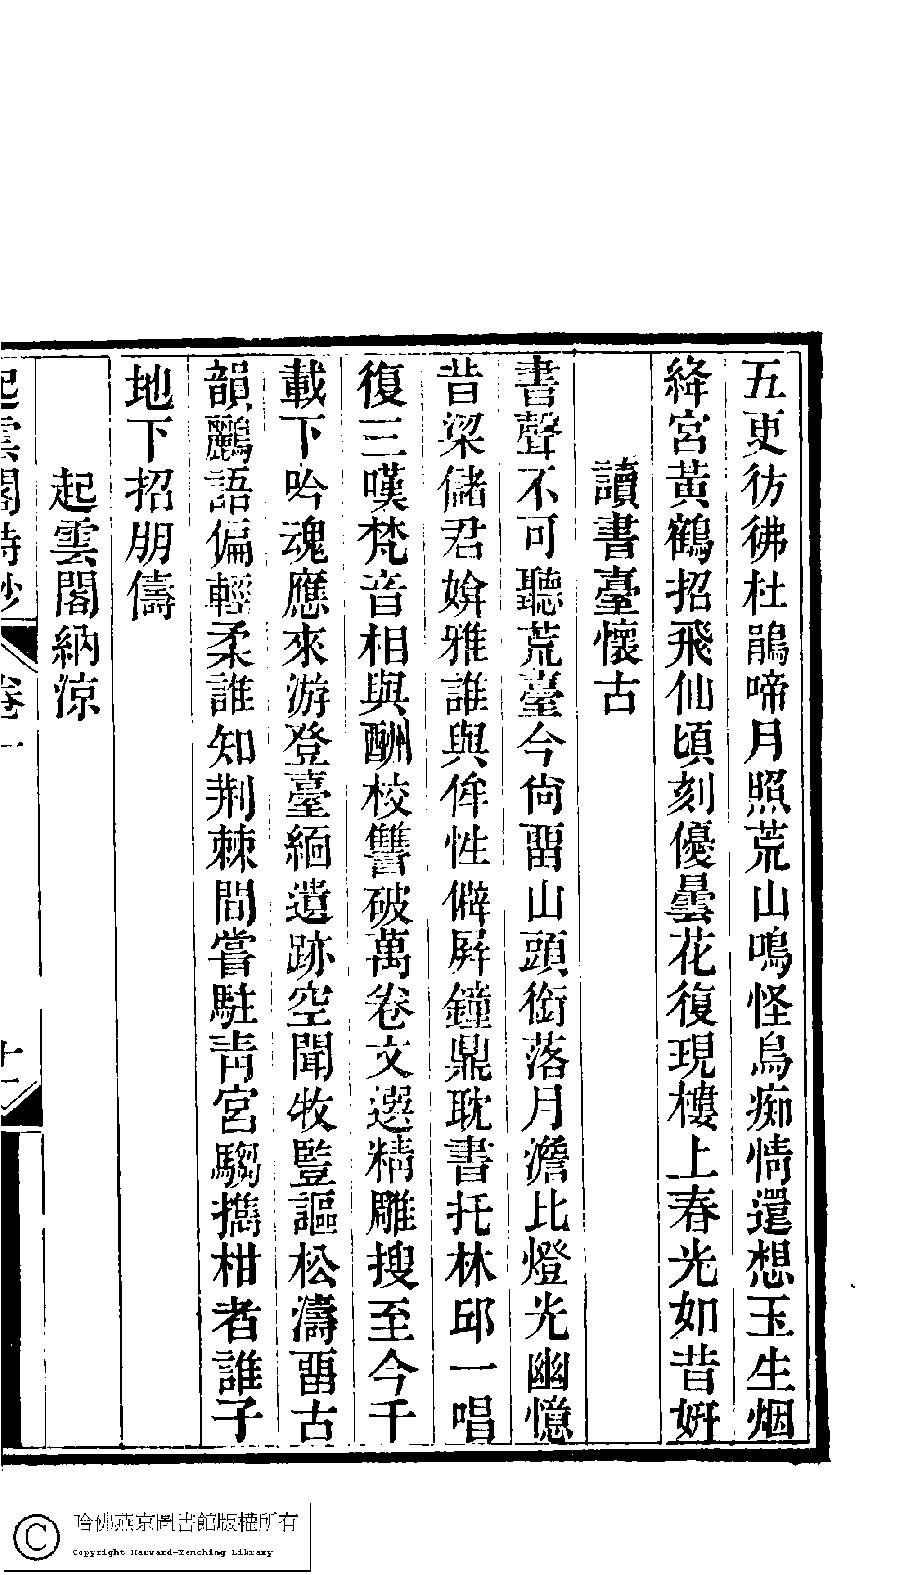 五更彷彿杜鵑啼月照荒山鳴怪鳥痴情還想玉生烟
絳宮黃鶴招飛仙頃刻優曇花復現樓上春光如昔妍
讀書臺懷古
書聲不可聽荒臺今尙畱山頭銜落月澹比燈光幽憶
昔梁儲君媕雅誰與侔性僻屏鐘鼎耽書托林邱一唱
復三嘆梵音相與酬校讐破萬卷文選精雕搜至今千
載下吟魂應來游登臺緬遺跡空聞牧豎謳松濤畱古
韻鸝語偏輕柔誰知荆棘間嘗駐靑宮騶攜柑者誰子
地下招朋儔
起雲閣納涼
起雲閣詩鈔 卷一 十一
哈佛燕京圖書館版權所有
Copyright Harvard-Yenching Library